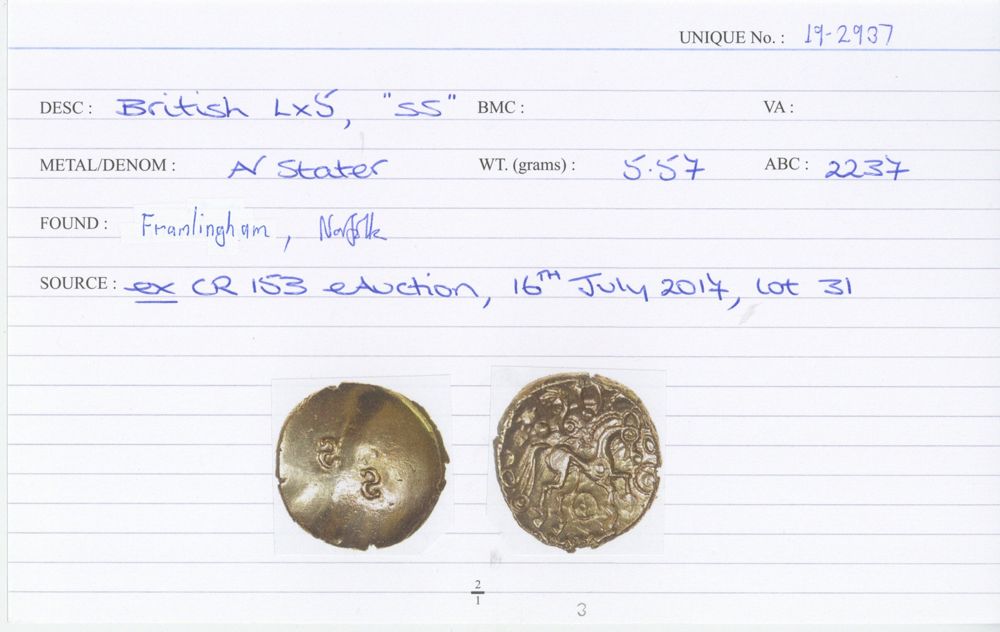 UNIQUE No. : 19-2937
DESC : British Lx5, "SS" BMC : VA :
METAL/DENOM : AV Stater WT. (grams) : 5.57 ABC : 2237
FOUND : Framlingham, Norfolk
SOURCE : ex CR 153 eAuction, 16TH July 2017, Lot 31
2
1
3